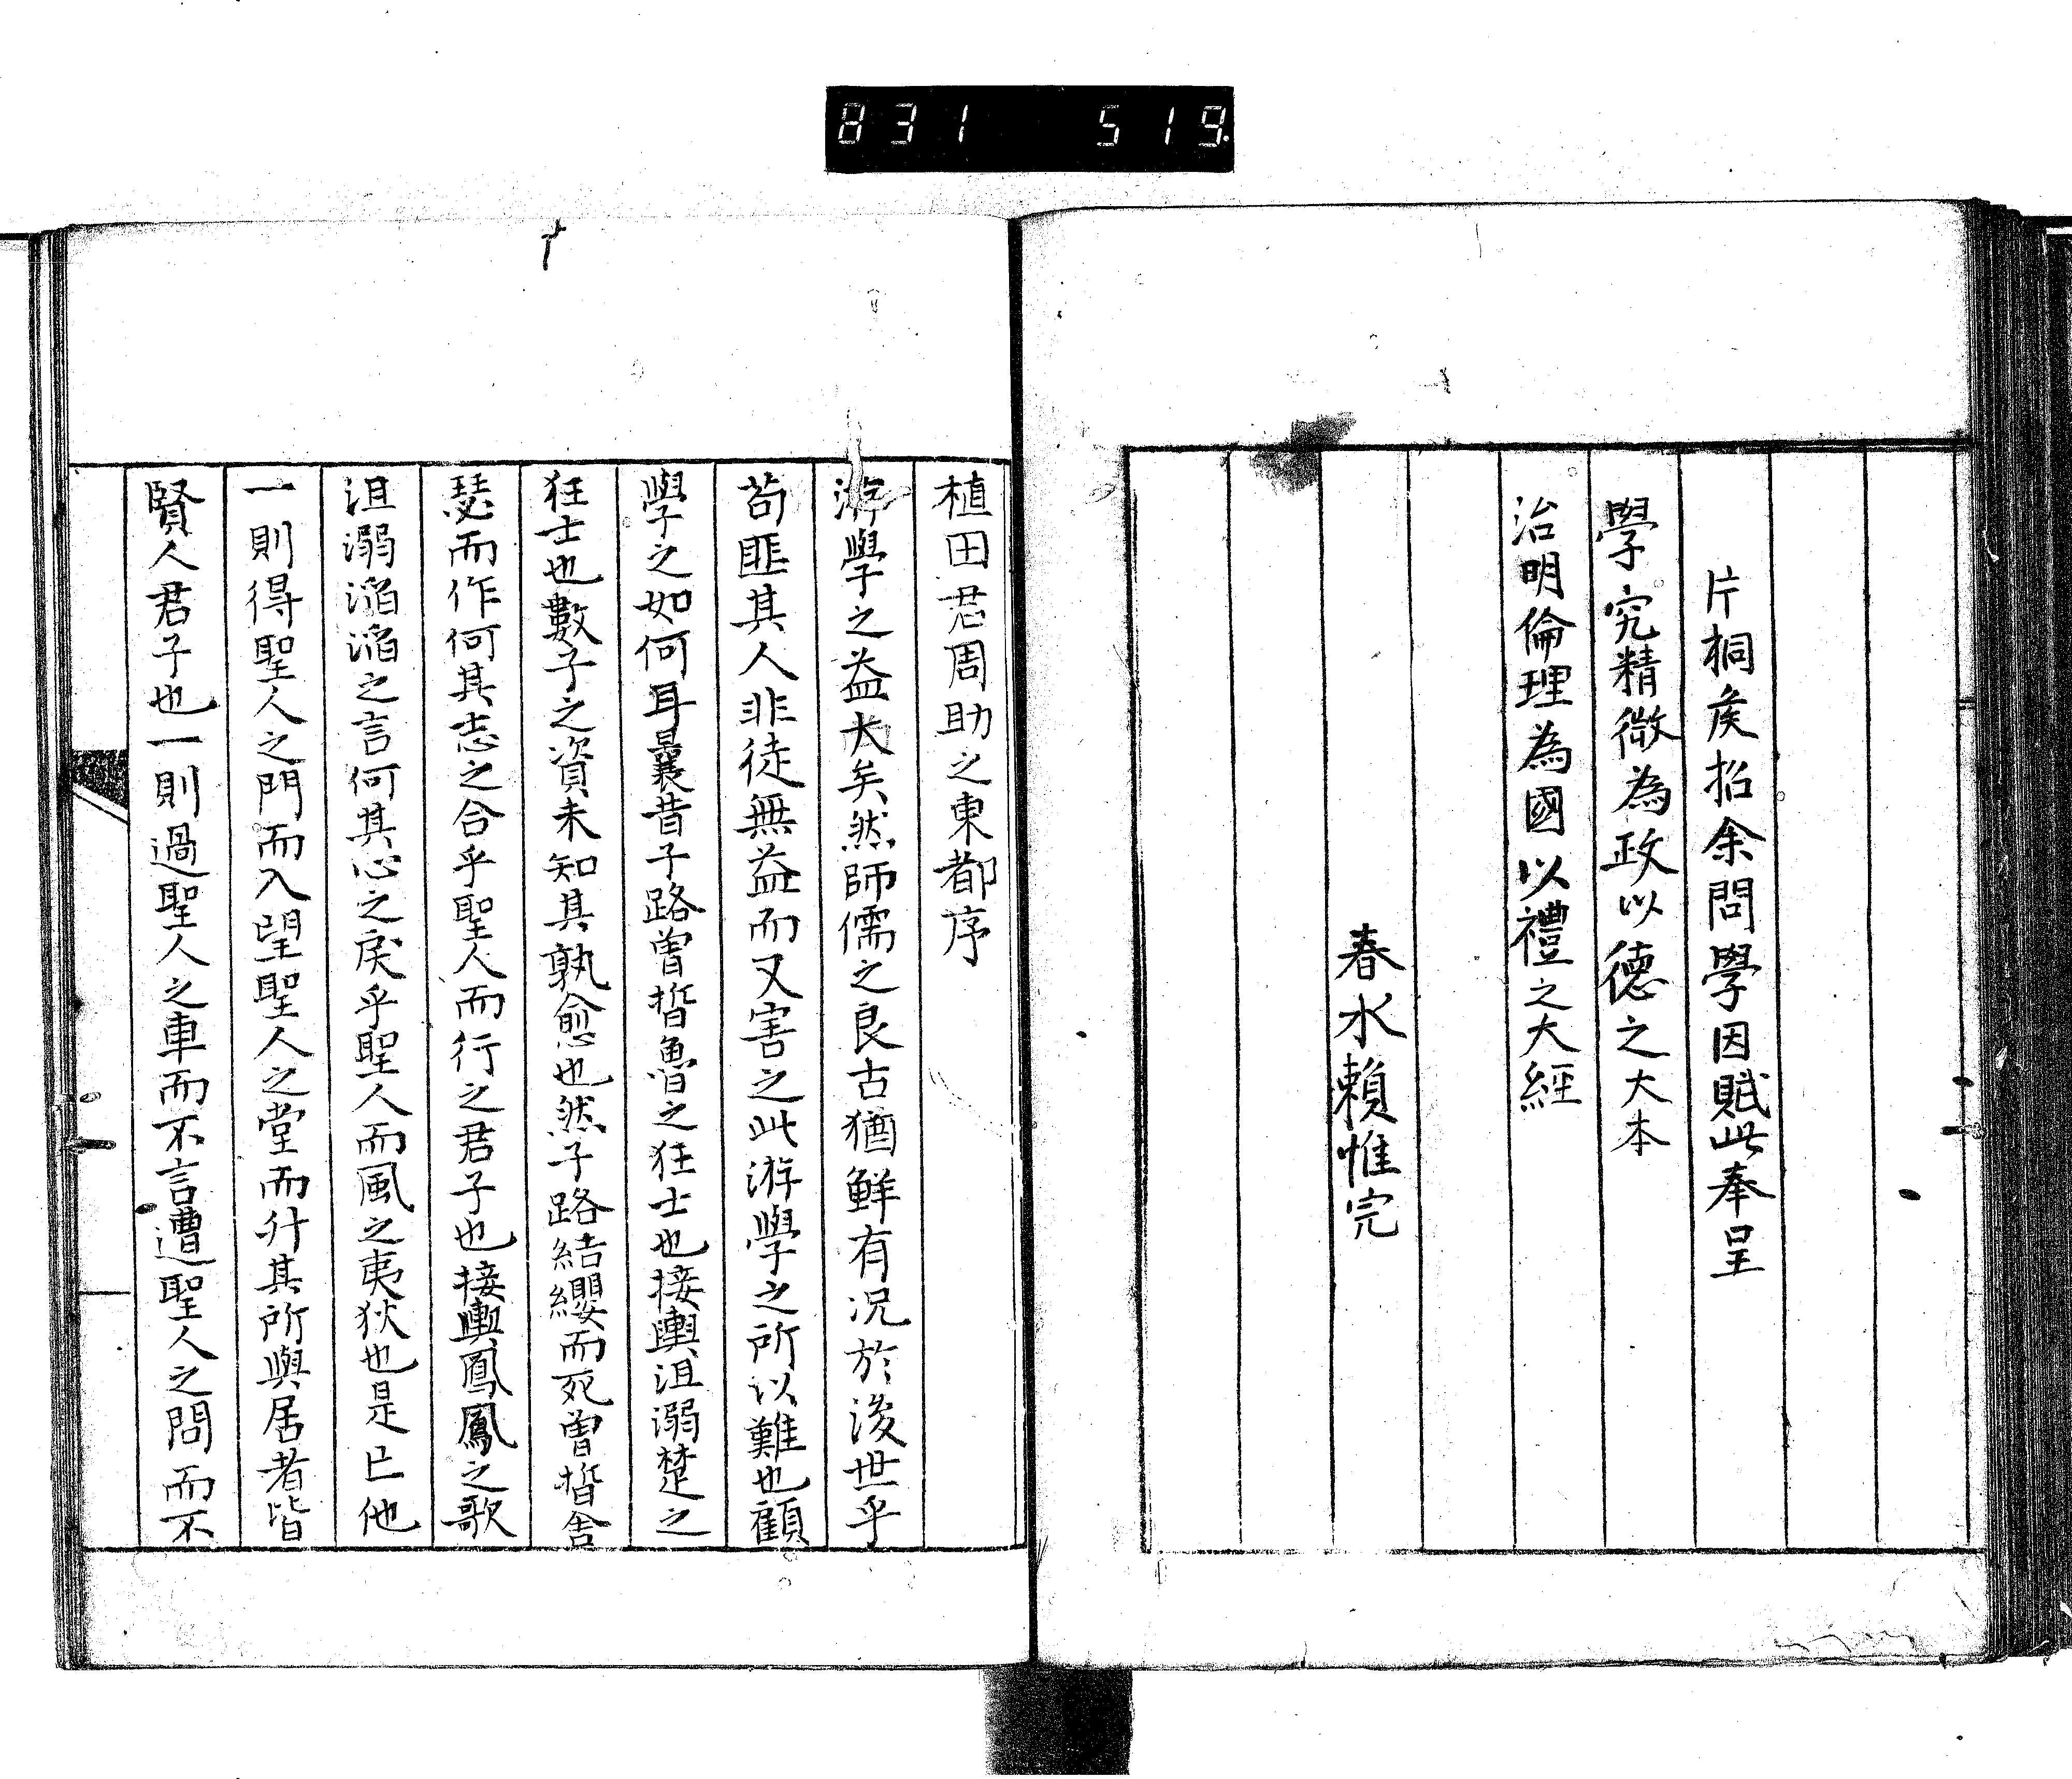 831 519
片桐矦招余問學因賦此奉呈
學究精微為政以德之大本
治明倫理為國以禮之大經
春水賴惟完
植田君周助之東都序
游學之益大矣然師儒之良古猶鮮有况於後世乎
苟匪其人非徒無益而又害之此游學之所以難也顧
學之如何耳曩昔子路曽晳魯之狂士也接輿沮溺楚之
狂士也數子之資未知其孰愈也然子路結纓而死曽晳舎
瑟而作何其志之合乎聖人而行之君子也接輿鳳鳳之歌
沮溺滔滔之言何其心之戾乎聖人而風之夷狄也是已他
一則得聖人之門而入望聖人之堂而升其所與居者皆
賢人君子也一則過聖人之車而不言遭聖人之問而不